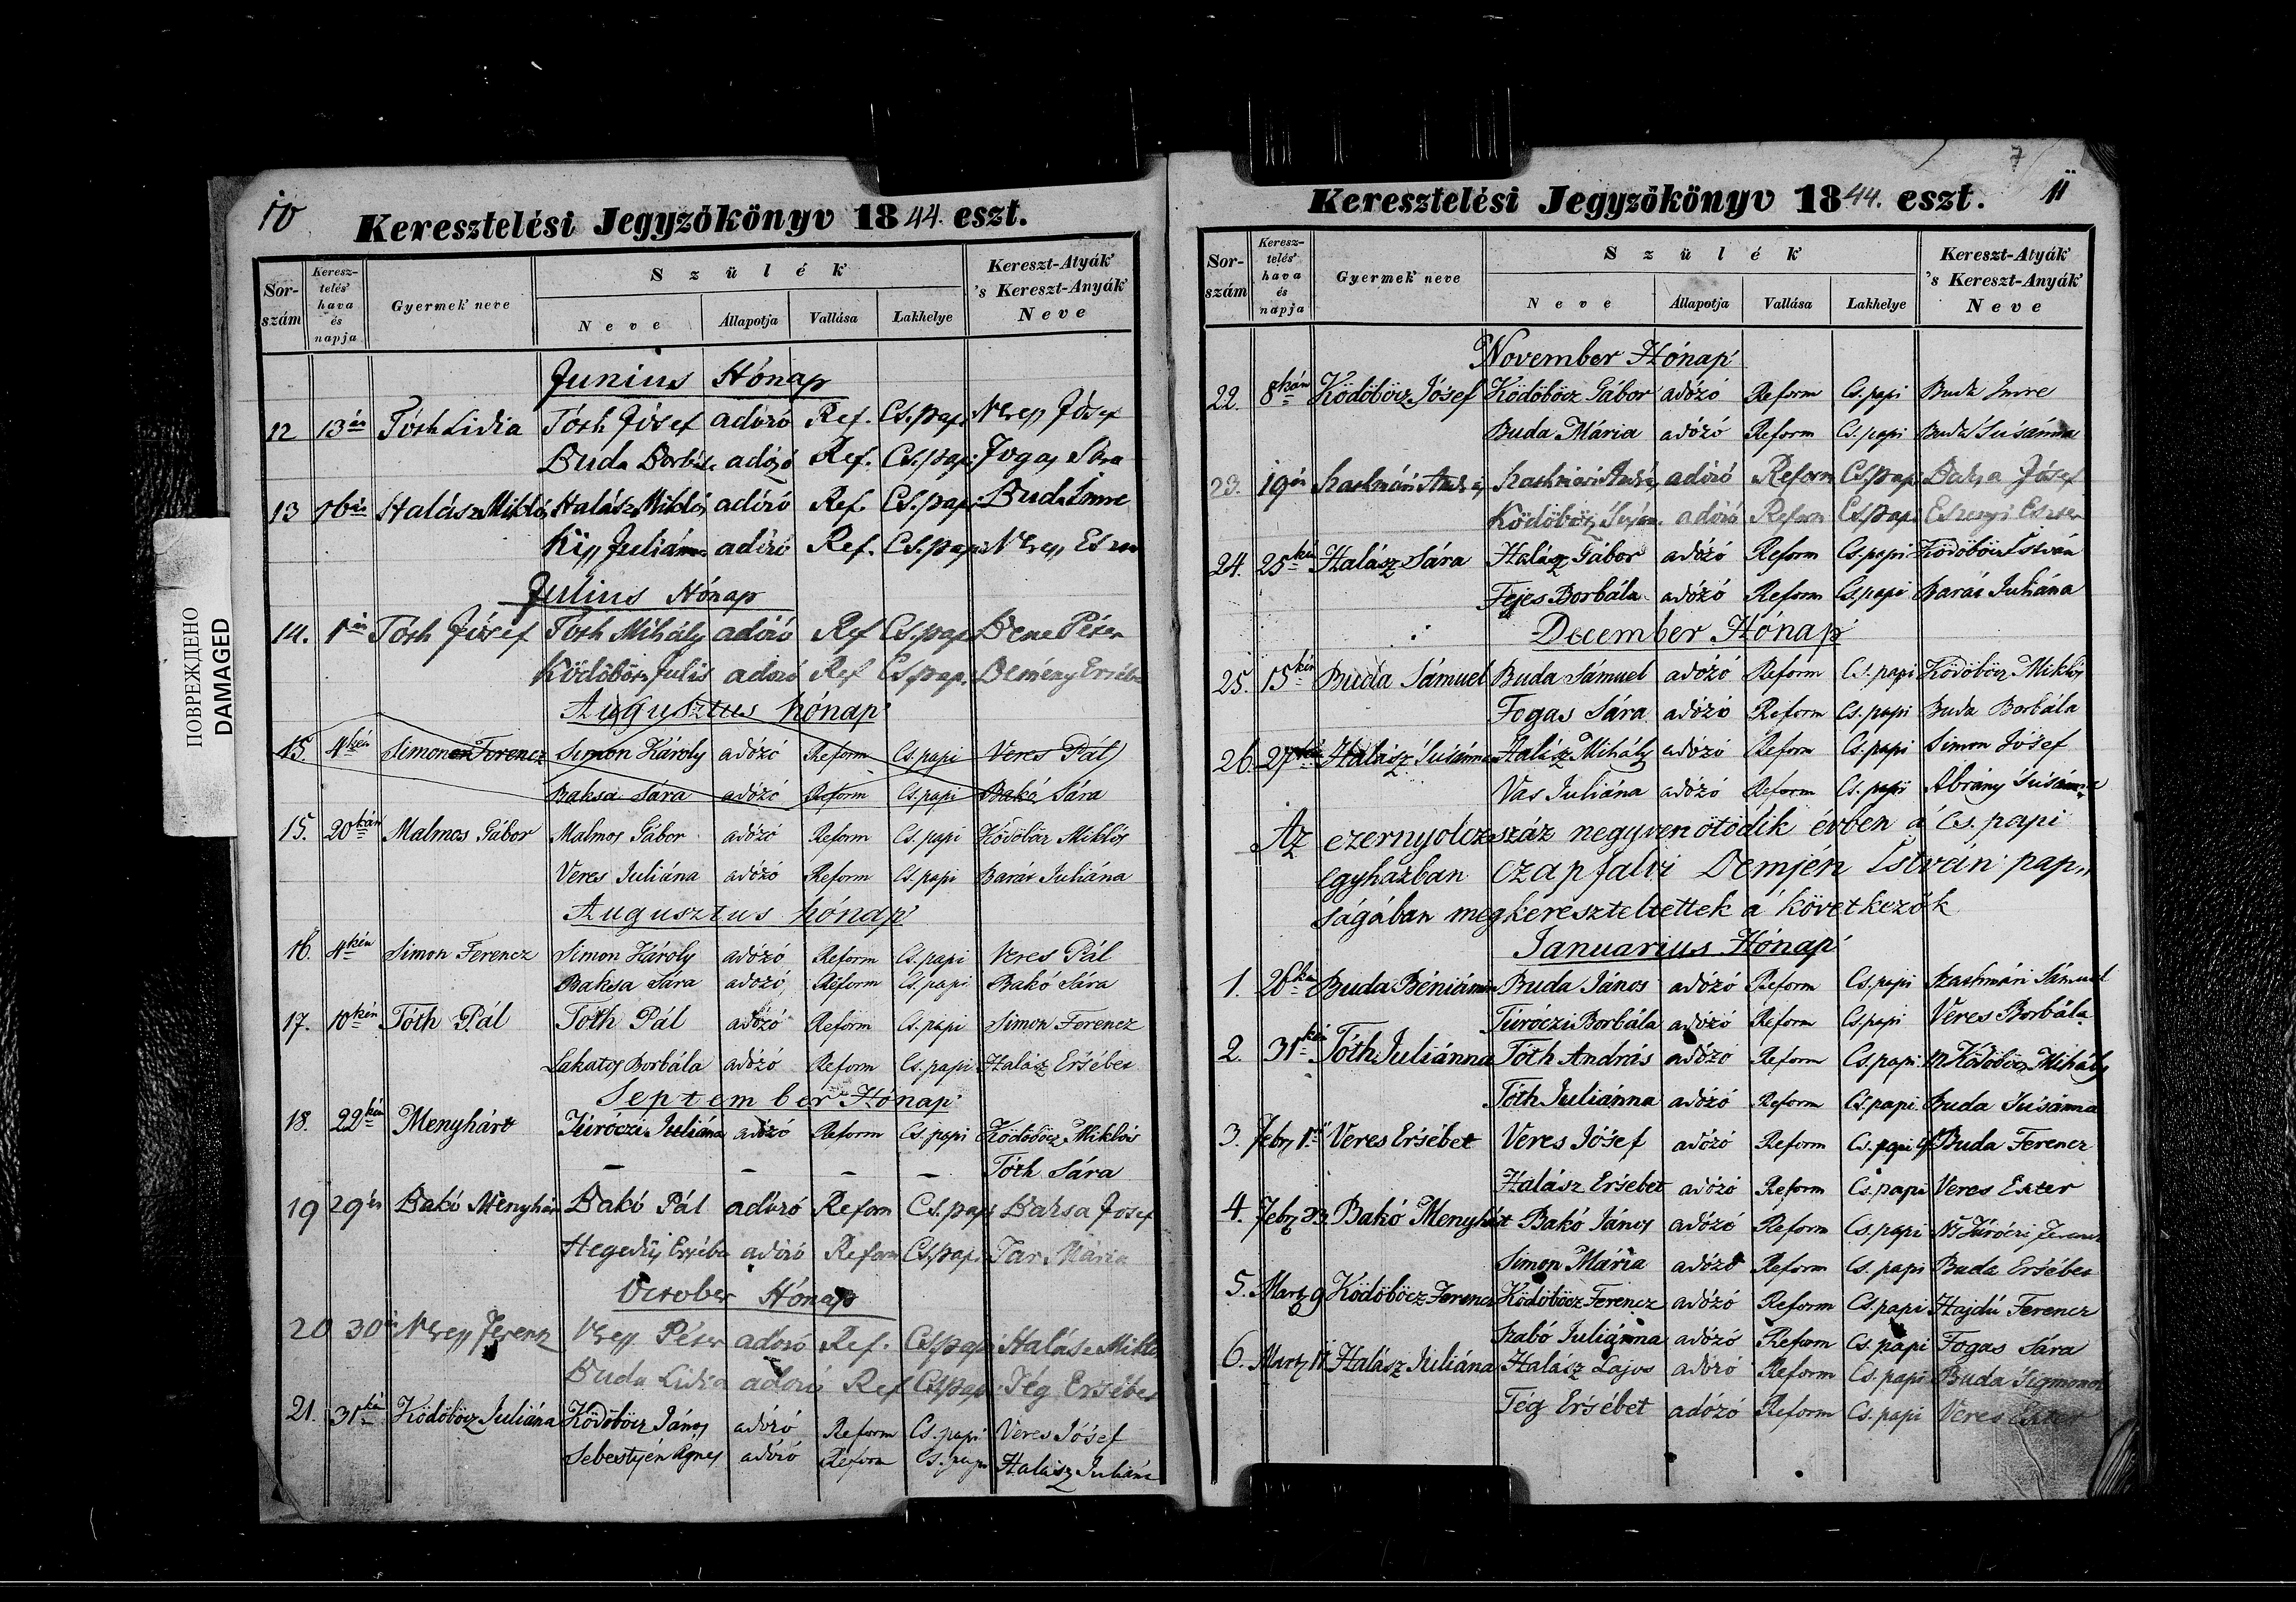 ПОВРЕЖДЕНО
DAMAGED
10
Keresztelési Jegyzökönyv 1844. eszt.
Sor-szám Keresz-telés' hava és napja Gyermek' neve Szülék' Neve Állapotja Vallása Lakhelye Kereszt-Atyák' 's Kereszt-Anyák' Neve
Junius Hónap
12 13án Tóth Lidia Tóth Jósef adózó Ref. Cs.papi Veress Jósef
Buda Borbála adózó Ref. Cs.papi Fogas Sára
13 16án Halász Miklós Halász Miklós adózó Ref. Cs.papi Buda Imre
Kiss Juliánna adózó Ref. Cs.papi Veress Eszter
Julius Hónap
14. 1én Tóth Jósef Tóth Mihály adózó Ref Cs.papi Bene Péter
Ködöböcz Julis adózó Ref Cs.papi Demény Ersébet
Augusztus hónap
15. 4kén Simon Ferencz Simon Károly adózó Reform Cs.papi Veres Pál
Baksa Sára adózó Reform Cs.papi Bakó Sára
15. 20kán Malmos Gábor Malmos Gábor adózó Reform Cs.papi Ködöböcz Miklós
Veres Juliána adózó Reform Cs.papi Barát Juliána
Augusztus hónap
16. 4kén Simon Ferencz Simon Károly adózó Reform Cs.papi Veres Pál
Baksa Sára adózó Reform Cs.papi Bakó Sára
17. 10kén Tóth Pál Tóth Pál adózó Reform Cs.papi Simon Ferencz
Lakatos Borbála adózó Reform Cs.papi Halász Ersébet
September Hónap
18. 22kén Menyhárt Túróczi Juliána adózó Reform Cs.papi Ködöböcz Miklós
– – – – Tóth Sára
19 29én Bakó Menyhárt Bakó Pál adózó Reform Cs.papi Baksa Josef
Hegedűs Ersébet adózó Reform Cs.papi Tar Mária
October Hónap
20 30 Veress Ferencz Veress Péter adózó Ref. Cs.papi Halász Miklós
Buda Lidia adózó Ref Cs.papi Tég Ersébet
21. 31kén Ködöböcz Juliána Ködöböcz János adózó Reform Cs.papi Veres Jósef
Sebestyén Agnes adózó Reform Cs.papi Halász Juliána
7
11
Keresztelési Jegyzökönyv 1844. eszt.
Sor-szám Keresz-telés' hava és napja Gyermek' neve Szülék' Neve Állapotja Vallása Lakhelye Kereszt-Atyák' 's Kereszt-Anyák' Neve
November Hónap
22. 8kán Ködöböcz Jósef Ködöböcz Gábor adózó Reform Cs.papi Buda Imre
Buda Mária adózó Reform Cs.papi Buda Susánna
23. 19én Szathmári András Szathmári András adózó Reform Cs.papi Baksa Jósef
Ködöböcz adózó Reform Cs.papi Eszenyi Eszter
24. 25kén Halász Sára Halász Gábor adózó Reform Cs.papi Ködöböcz István
Fejes Borbála adózó Reform Cs.papi Barát Juliána
December Hónap
25. 15kén Buda Sámuel Buda Sámuel adózó Reform Cs.papi Ködöböcz Miklós
Fogas Sára adózó Reform Cs.papi Buda Borbála
26. 27kén Halász Susánna Halász Mihály adózó Reform Cs.papi Simon Jósef
Vas Juliána adózó Reform Cs.papi Abrány Susánna
Az ezernyolczszáz negyvenötödik évben a' Cs.papi
egyházban czapfalvi Demjén István pap„
ságában megkereszteltettek a' következök
Januarius Hónap
1. 26kén Buda Béniámin Buda János adózó Reform Cs.papi Szathmári Sámuel
Túróczi Borbála adózó Reform Cs.papi Veres Borbála
2. 31kén Tóth Juliánna Tóth András adózó Reform Cs.papi Ködöböcz Mihály
Tóth Juliánna adózó Reform Cs.papi Buda Susánna
3. Febr 1. Veres Ersébet Veres Jósef adózó Reform Cs.papi Buda Ferencz
Halász Ersébet adózó Reform Cs.papi Veres Eszter
4. Febr 23. Bakó Menyhárt Bakó János adózó Reform Cs.papi Ns Túróczi Ferencz
Simon Mária adózó Reform Cs.papi Buda Ersébet
5. Martz 9 Ködöböcz Ferencz Ködöböcz Ferencz adózó Reform Cs.papi Hajdú Ferencz
Szabó Juliánna adózó Reform Cs.papi Fogas Sára
6. Martz 11 Halász Juliána Halász Lajos adózó Reform Cs.papi Buda Sigmond
Tég Ersébet adózó Reform Cs.papi Veres Eszter